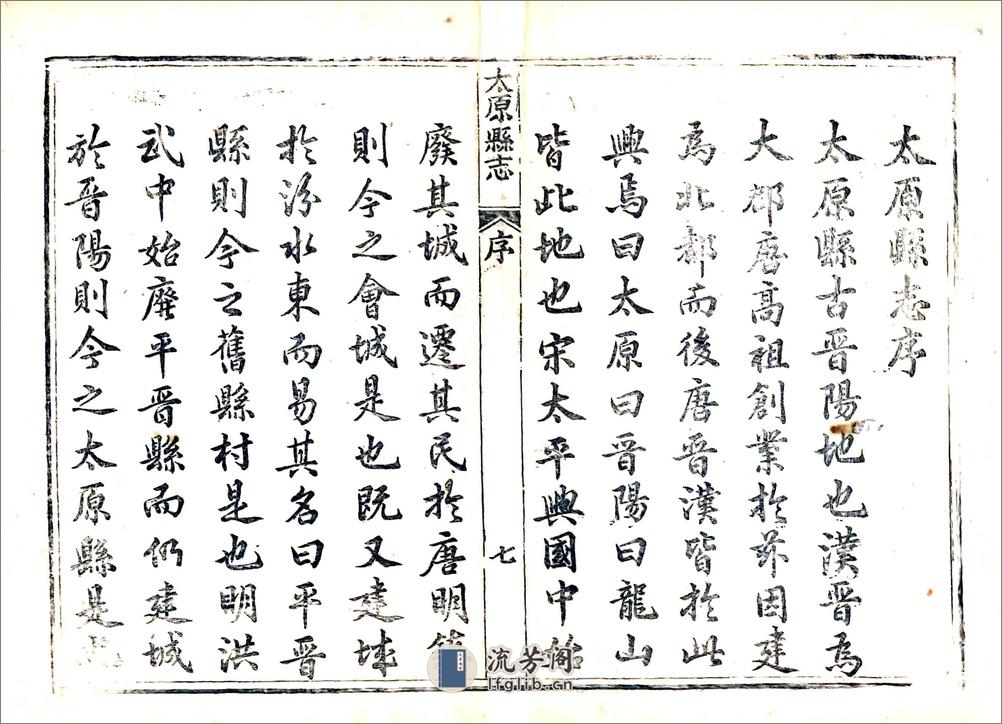 太原縣志序
太原縣古晋陽地也漢晋爲
大郡唐高祖創業於茲因建
爲北都而後唐晋漢皆於此
興焉曰太原曰晋陽曰龍山
皆此地也宋太平興國中始
太原縣志
序
七
廢其城而遷其民於唐明
則今之會城是也既又建城
於汾水東而易其名曰平晋
縣則今之舊縣村是也明洪
武中始廢平晋縣而仍建城
於晋陽則今之太原縣是
流芳阁
lfglib.cn